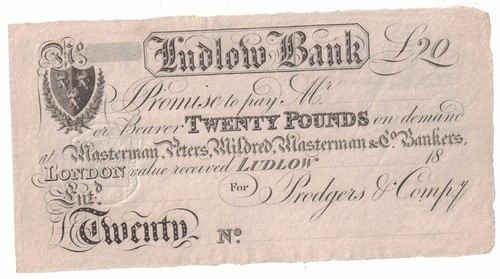 No. Ludlow Bank £20
I Promise to pay Mr.
or Bearer TWENTY POUNDS on demand
at Masterman, Peters, Mildred, Masterman & Co. Bankers,
LONDON value received LUDLOW 18
Entd. For Prodgers & Compy
Twenty No.